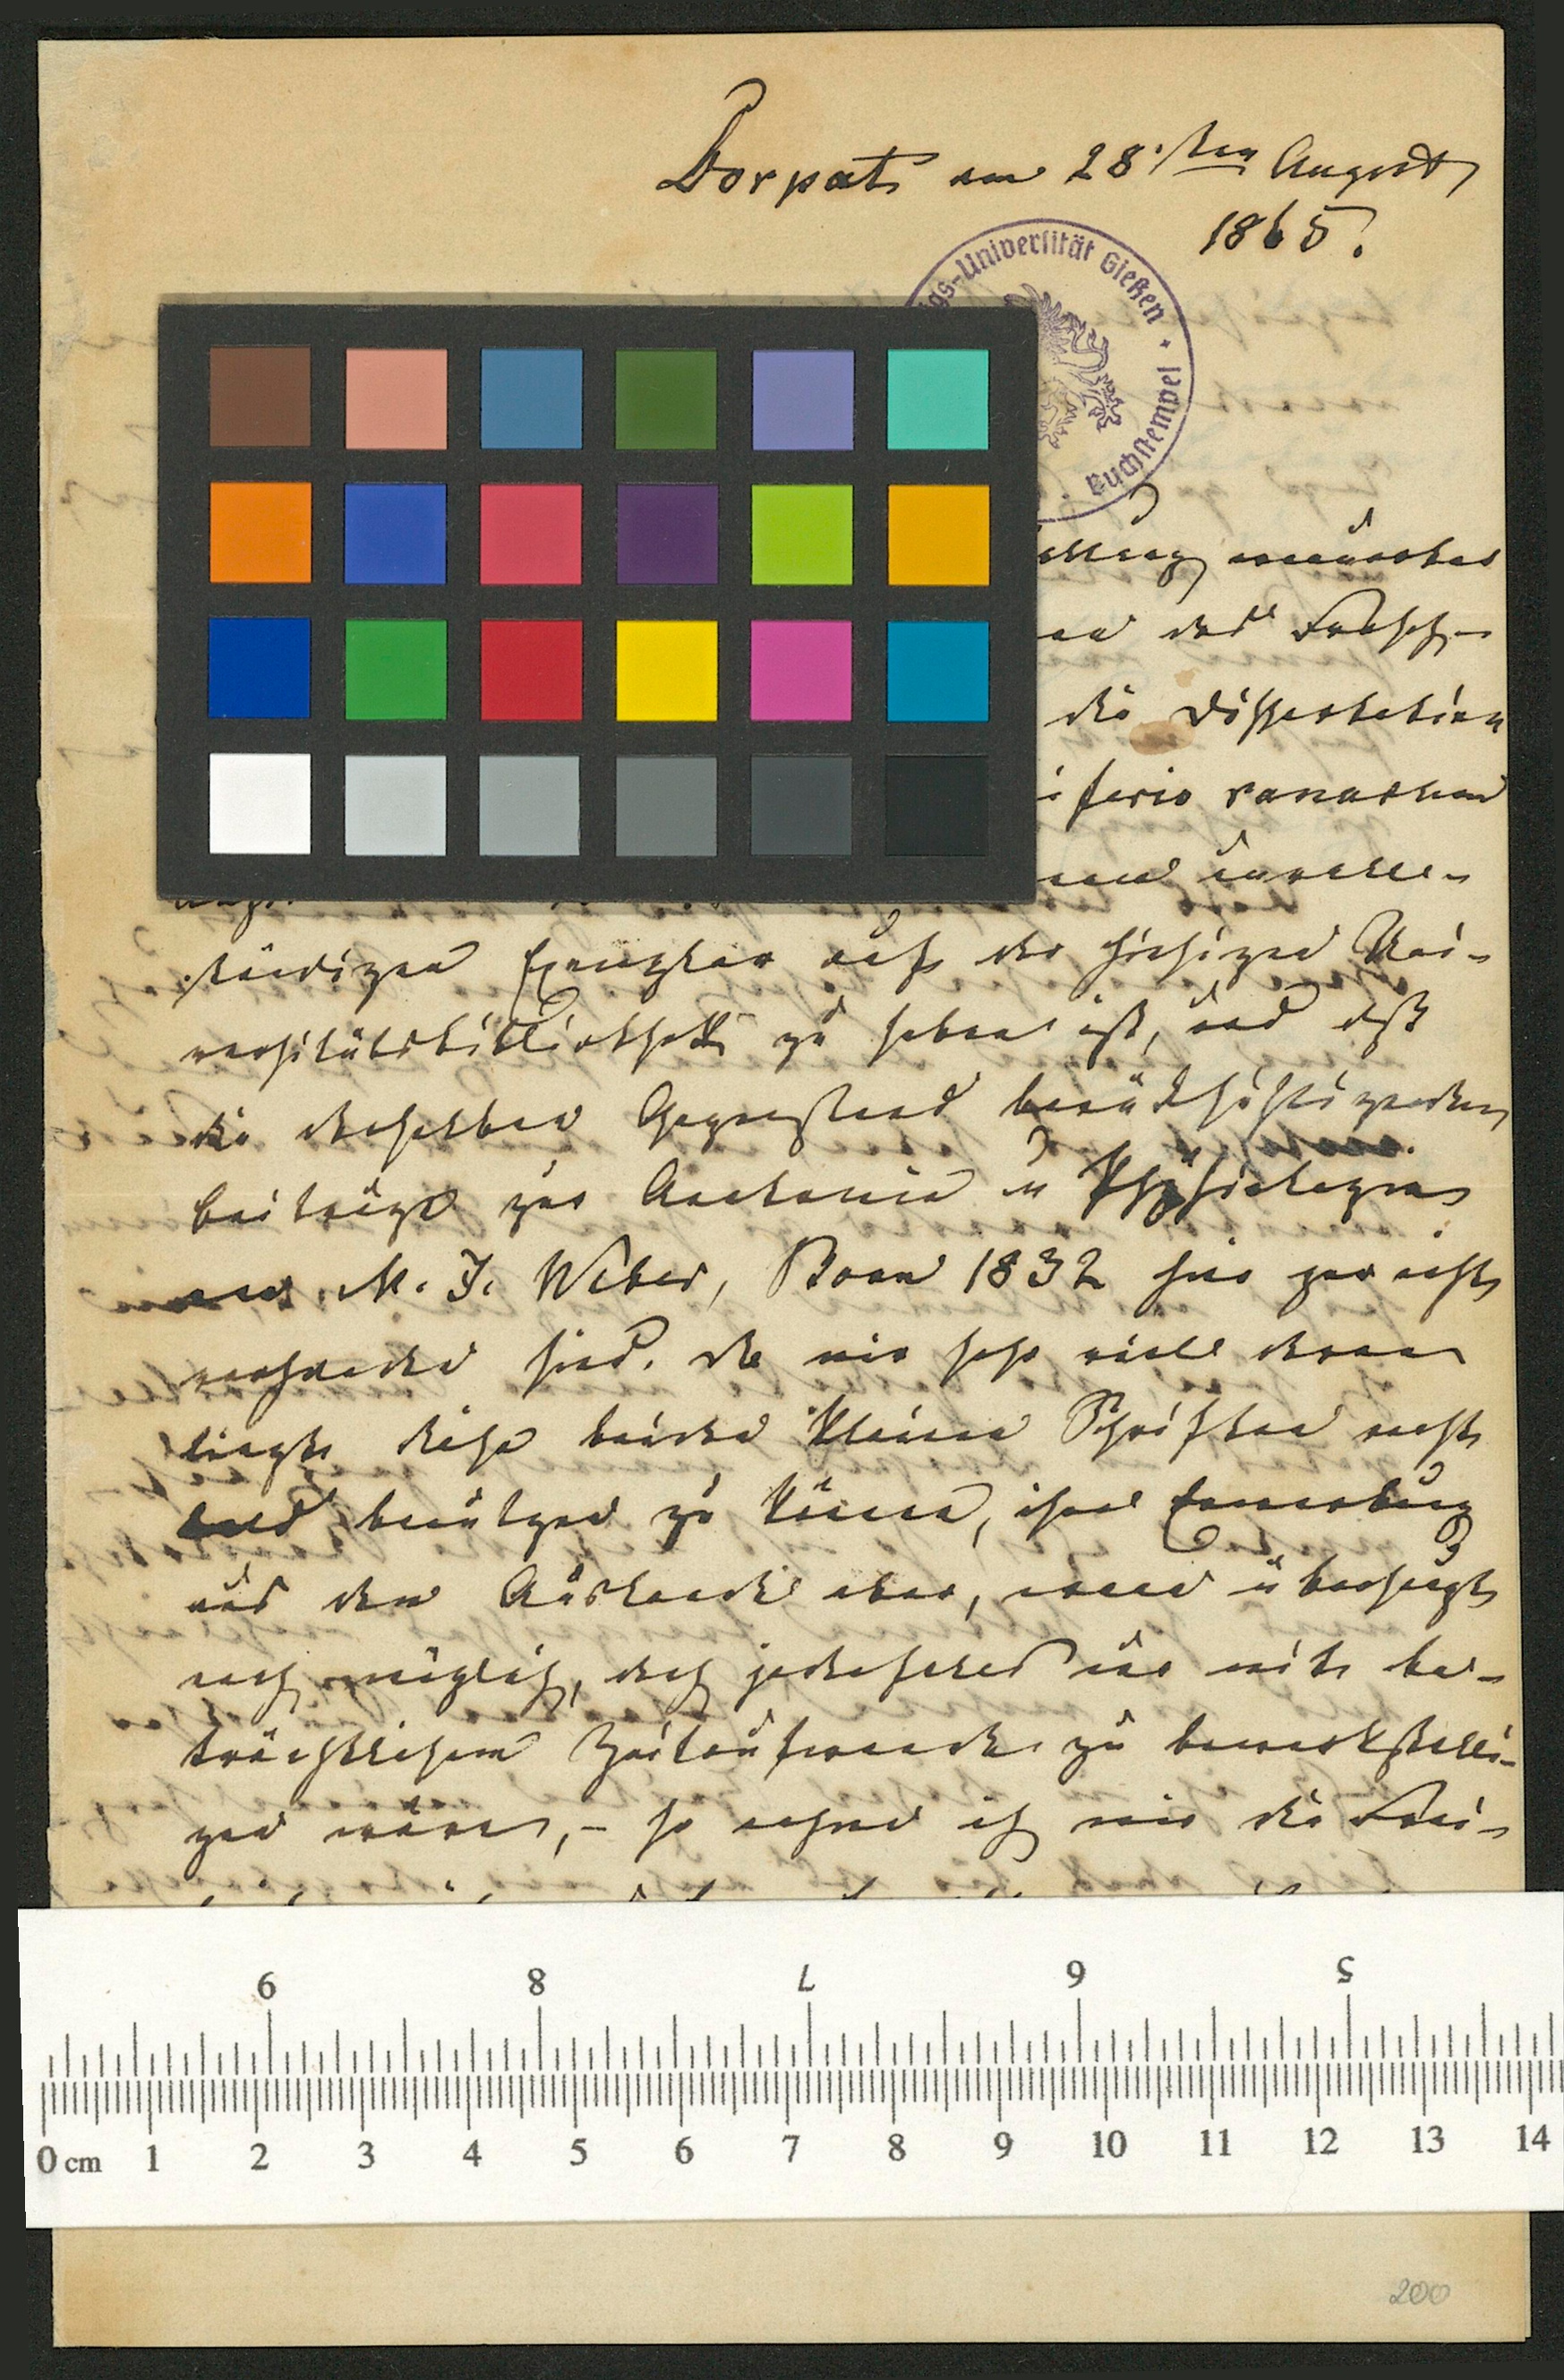 Dorpat am 28sten August
1865.
Universität Gießen
Buchstempel
des Frosch-
die Dissertation
ranarum
unvoll-
ständigen Exemplar auf der hiesigen Uni-
versitätsbibliothek zu haben ist, und daß
die denselben Gegenstand berücksichtigenden
Beiträge zur Anatomie u Physiologie
von M. J. Weber, Bonn 1832 hier gar nicht
vorhanden sind. Da mir sehr viel daran
liegt diese beiden kleinen Schriften recht
bald benützen zu können, ihre Erwerbung
aus dem Auslande aber, wenn überhaupt
noch möglich, doch jedenfalls nur mit be-
trächtlichem Zeitaufwande zu bewerkstelli-
gen wäre, - so nehme ich mir die Frei-
9 8 7 6 5
0 cm 1 2 3 4 5 6 7 8 9 10 11 12 13 14
200